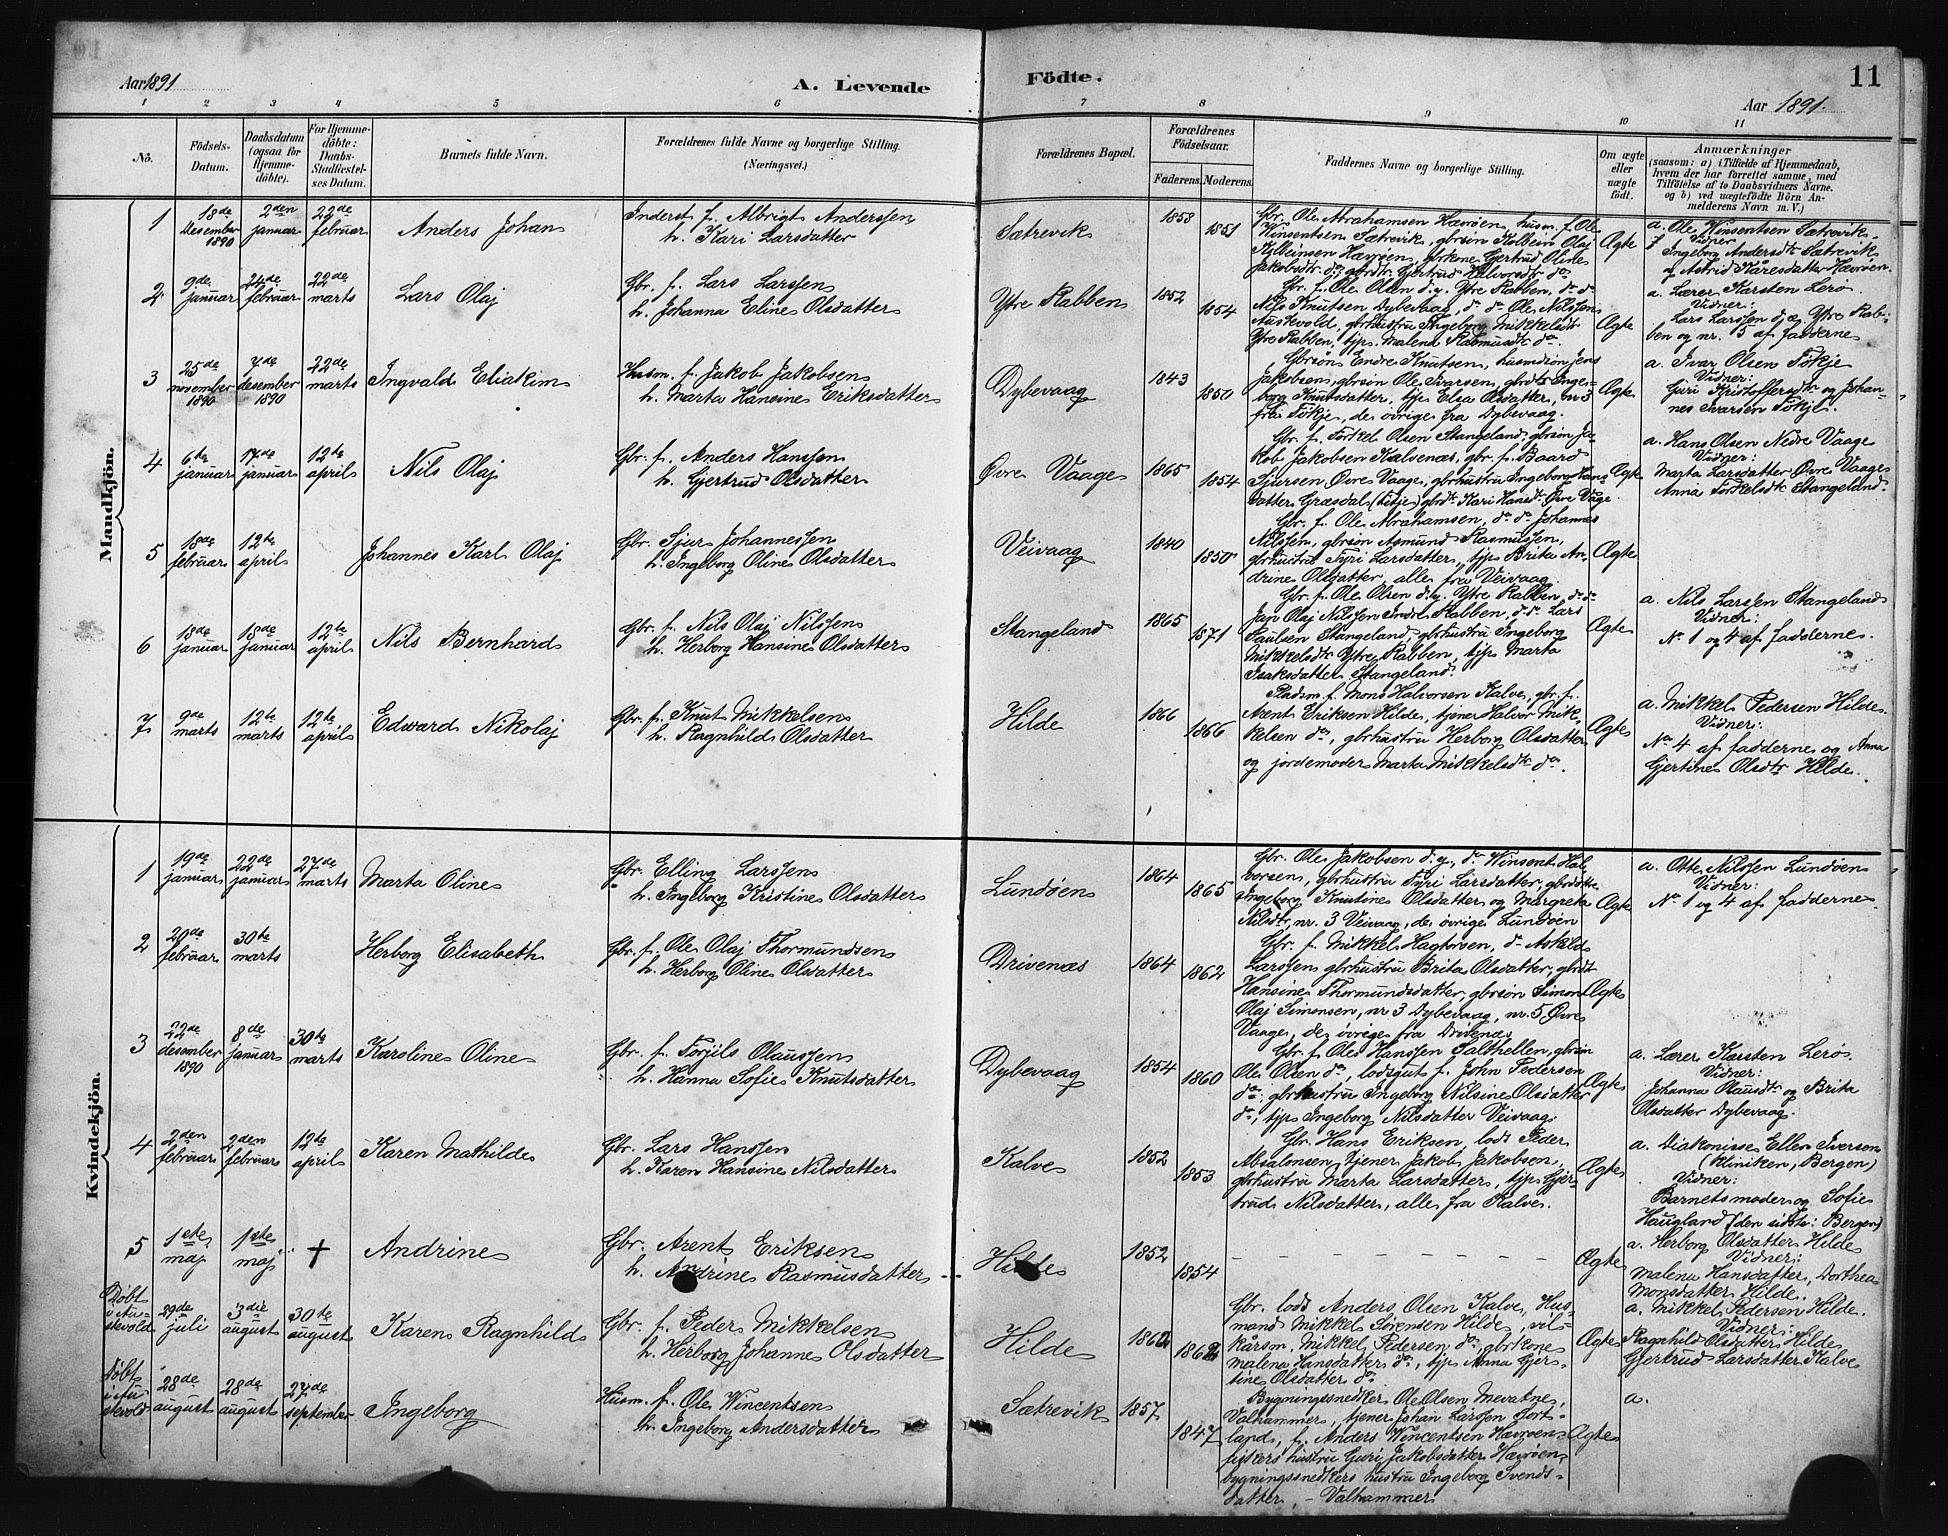 Aar 1891
A. Levende Födte.
11
Aar 1891.
1 2 3 4 5 6 7 8 9 10 11
No.
Födsels-Datum.
Daabsdatum (ogsaa for Hjemme-döbte).
For Hjemme-döbte: Daabs-Stadfæstel-ses Datum.
Barnets fulde Navn.
Forældrenes fulde Navne og borgerlige Stilling. (Næringsvei.)
Forældrenes Bopæl.
Forældrenes Födselsaar.
Faderens. Moderens.
Faddernes Navne og borgerlige Stilling.
Om ægte eller uægte födt.
Anmærkninger
(saasom: a) i Tilfælde af Hjemmedaab,
hvem der har forrettet samme, med
Tilföielse af to Daabsvidners Navne.
og b) ved uægtefödte Börn An-
melderens Navn m. V.)
Mandkjön.
1 18de Desember 1890 2den januar 22de februar Anders Johan
Inderst f. Albrigt Anderssen
h. Kari Larsdatter
Sætrevik 1858 1851
Gbr. Ole Abrahamsen Hævrøen, husm. f. Ole
Winsentsen Sætrevik, gbrsøn Kolbein Olaj
Kolbeinsen Hævrøen, gbrkone Gjertrud Oline
Jakobsdtr. do, gbrdtr. Gjertrud Halvorsdtr. do
Ægte
a. Ole Winsentsen Sætrevik.
Vidner
Ingeborg Andersdtr. Sætrevik
og Astrid Kåresdatter Hævrøen.
2 9de januar 24de februar 22de marts Lars Olaj
Gbr. f. Lars Larssen
h. Johanna Eline Olsdatter
Ytre Rabben 1852 1854
Gbr. f. Ole Olsen d.y. Ytre Rabben, do do
Nils Knutsen Dybevaag, do do Ole Nilssen
Austevold, gbrhustru Ingeborg Mikkelsdtr.
Ytre Rabben, tjp. Malena Rasmusdtr. do
Ægte
a. Lærer Karsten Lerø.
Vidner:
Lars Larssen d.æ. Ytre Rab-
ben og nr. 5 af fadderne
3 25de november 1890 7de desember 1890 22de marts Ingvald Eliakim
Husm. f. Jakob Jakobsen
h. Marta Hansine Eriksdatter
Dybevaag 1843 1850
Gbrsøn Endre Knutsen, husmdsøn Jens
Jakobsen, gbrsøn Ole Ivarsen, gbrdtr. Inge-
borg Knutsdatter, tjp. Elsa Olsdatter, nr 3
fra Fökje, de övrige fra Dybevaag.
Ægte
a. Ivar Olsen Fökje
Vidner:
Guri Kristoffersdtr. og Johan-
nes Ivarsen Fökje.
4 6te januar 17de januar 12te april Nils Olaj
Gbr. f. Anders Hanssen
h. Gjertrud Olsdatter
Øvre Vaage 1865 1854
Gbr. f. Torkel Olsen Stangeland, gbrsøn Ja-
kob Jakobsen Kalvenæs, gbr. f. Baard
Sjursen Øvre Vaage, gbrhustru Ingeborg Hans-
datter Græsdal, gbrdtr. Kari Hansdtr. Øvre Vaage.
Ægte
a. Hans Olsen Nedre Vaage
Vidner:
Marta Larsdatter Øvre Vaage
Anna Torkelsdtr. Stangeland.
5 18de februar 12te april Johannes Karl Olaj
Gbr. Sjur Johannessen
h. Ingeborg Oline Olsdatter
Veivaag 1840 1850
Gbr. f. Ole Abrahamsen, do do Johannes
Nilssen, gbrsøn Asmund Rasmussen,
gbrhustru Tyri Larsdatter, tjp Brita An-
drine Olsdatter, alle fra Veivaag.
Ægte
6 18de januar 18de januar 12te april Nils Bernhard
Gbr. f. Nils Olaj Nilssen
h. Herborg Hansine Olsdatter
Stangeland 1865 1871
Gbr. f. Ole Olsen d.y. Ytre Rabben, do do
Jan Olaj Nilssen Indre Rabben, do do Lars
Paulsen Stangeland, gbrhustru Ingeborg
Mikkelsdtr. Ytre Rabben, tjp. Marta
Isaksdatter Stangeland.
Ægte
a. Nils Larssen Stangeland
Vidner:
No 1 og 4 af fadderne.
7 9de marts 12te marts 12te april Edward Nikolaj
Gbr. f. Knut Mikkelsen
h. Ragnhild Olsdatter
Hilde 1866 1866
Pladsm. f. Mons Halvorsen Kalve, gbr. f.
Arent Eriksen Hilde, tjener Halvor Mik-
kelsen do, gbrhustru Herborg Olsdatter
og jordemoder Marta Mikkelsdtr. do.
Ægte
a. Mikkel Pedersen Hilde.
Vidner:
No 4 af fadderne og Anna
Gjertine Olsdtr. Hilde.
Kvindekjön.
1 19de januar 22de januar 27de marts Marta Oline
Gbr. Elling Larssen
h. Ingeborg Kristine Olsdatter
Lundøen 1864 1865
Gbr. Ole Jakobsen d.y., do Winsent Hal-
vorsen, gbrhustru Tyri Larsdatter, gbrdøtre
Ingeborg Knutine Olsdatter og Margreta
Nilsdtr, nr. 3 Veivaag, de övrige Lundøen
Ægte
a. Otte Nilssen Lundøen
Vidner:
No 1 og 4 af fadderne.
2 20de februar 30te marts Herborg Elisabeth
Gbr. f. Ole Olaj Thormundsen
h. Herborg Oline Olsdatter
Drivenæs 1864 1862
Gbr. f. Mikkel Hagtorsen, do Askild
Larssen, gbrhustru Brita Olsdatter, gbrdtr
Hansine Thormundsdatter, gbrsøn Simon
Olaj Simonsen, nr 3 Dybevaag, nr. 5 Øvre
Vaage, de övrige fra Drivenæs
Ægte
3 22de desember 1890 8de januar 30te marts Karoline Oline
Gbr. f. Torjils Olaussen
h. Hanna Sofie Knutsdatter
Dybevaag 1854 1860
Gbr. f. Ole Hanssen Salthellen, gbrsøn
Ole Olsen do, lodsgut f. John Pedersen
do, gbrhustru Ingeborg Nilsine Olsdatter
do, tjp. Ingeborg Nilsdatter Veivaag
Ægte
a. Lærer Karsten Lerø.
Vidner:
Johanna Olausdtr. og Brita
Olsdatter Dybevaag.
4 2den februar 2den februar 12te april Karen Mathilde
Gbr. Lars Hanssen
h. Karen Hansine Nilsdatter
Kalve 1852 1853
Gbr. Hans Eriksen, lods Peder
Absalonsen, tjener Jakob Jakobsen,
gbrhustru Marta Larsdatter, tjp. Gjer-
trud Nilsdatter, alle fra Kalve.
Ægte
a. Diakonisse Ellen Iversen
(kliniken, Bergen)
Vidner:
Barnets moder og Sofie
Haugland (den sidste: Bergen)
5 1ste maj 1ste maj † Andrine
Gbr. Arent Eriksen
h. Andrine Rasmusdatter
Hilde 1852 1854
Ægte
a. Herborg Olsdatter Hilde
Vidner:
Malena Hansdatter, Dorthea
Monsdatter Hilde.
Døbt i Au-stevold 29de juli 3die august 30te august Karen Ragnhild
Gbr. f. Peder Mikkelsen
h. Herborg Johanne Olsdatter
Hilde 1862 1862
Gbr. lods Anders Olsen Kalve, Hus-
mand Mikkel Sørensen Hilde, vil-
kårsm. Mikkel Pedersen do, gbrkone
Malena Hansdatter do, tjp. Anna Gjer-
tine Olsdatter do
Ægte
a. Mikkel Pedersen Hilde.
Vidner:
Ragnhild Olsdatter Hilde
Gjertrud Larsdatter Kalve
Døbt i Au-stevold 28de august 28de august 27de september Ingeborg
Husm. f. Ole Wincentsen
h. Ingeborg Andersdatter
Sætrevik 1857 1847
Bygningssnedker Ole Olsen Mevatne,
Valhammer, tjener Johan Larssen Tort-
land, f. Anders Wincentsen Hævrøen,
fiskers hustru Guri Jakobsdatter Hævrøen,
bygningssnedkers hustru Ingeborg Svends-
datter, - Valhammer
Ægte
a.